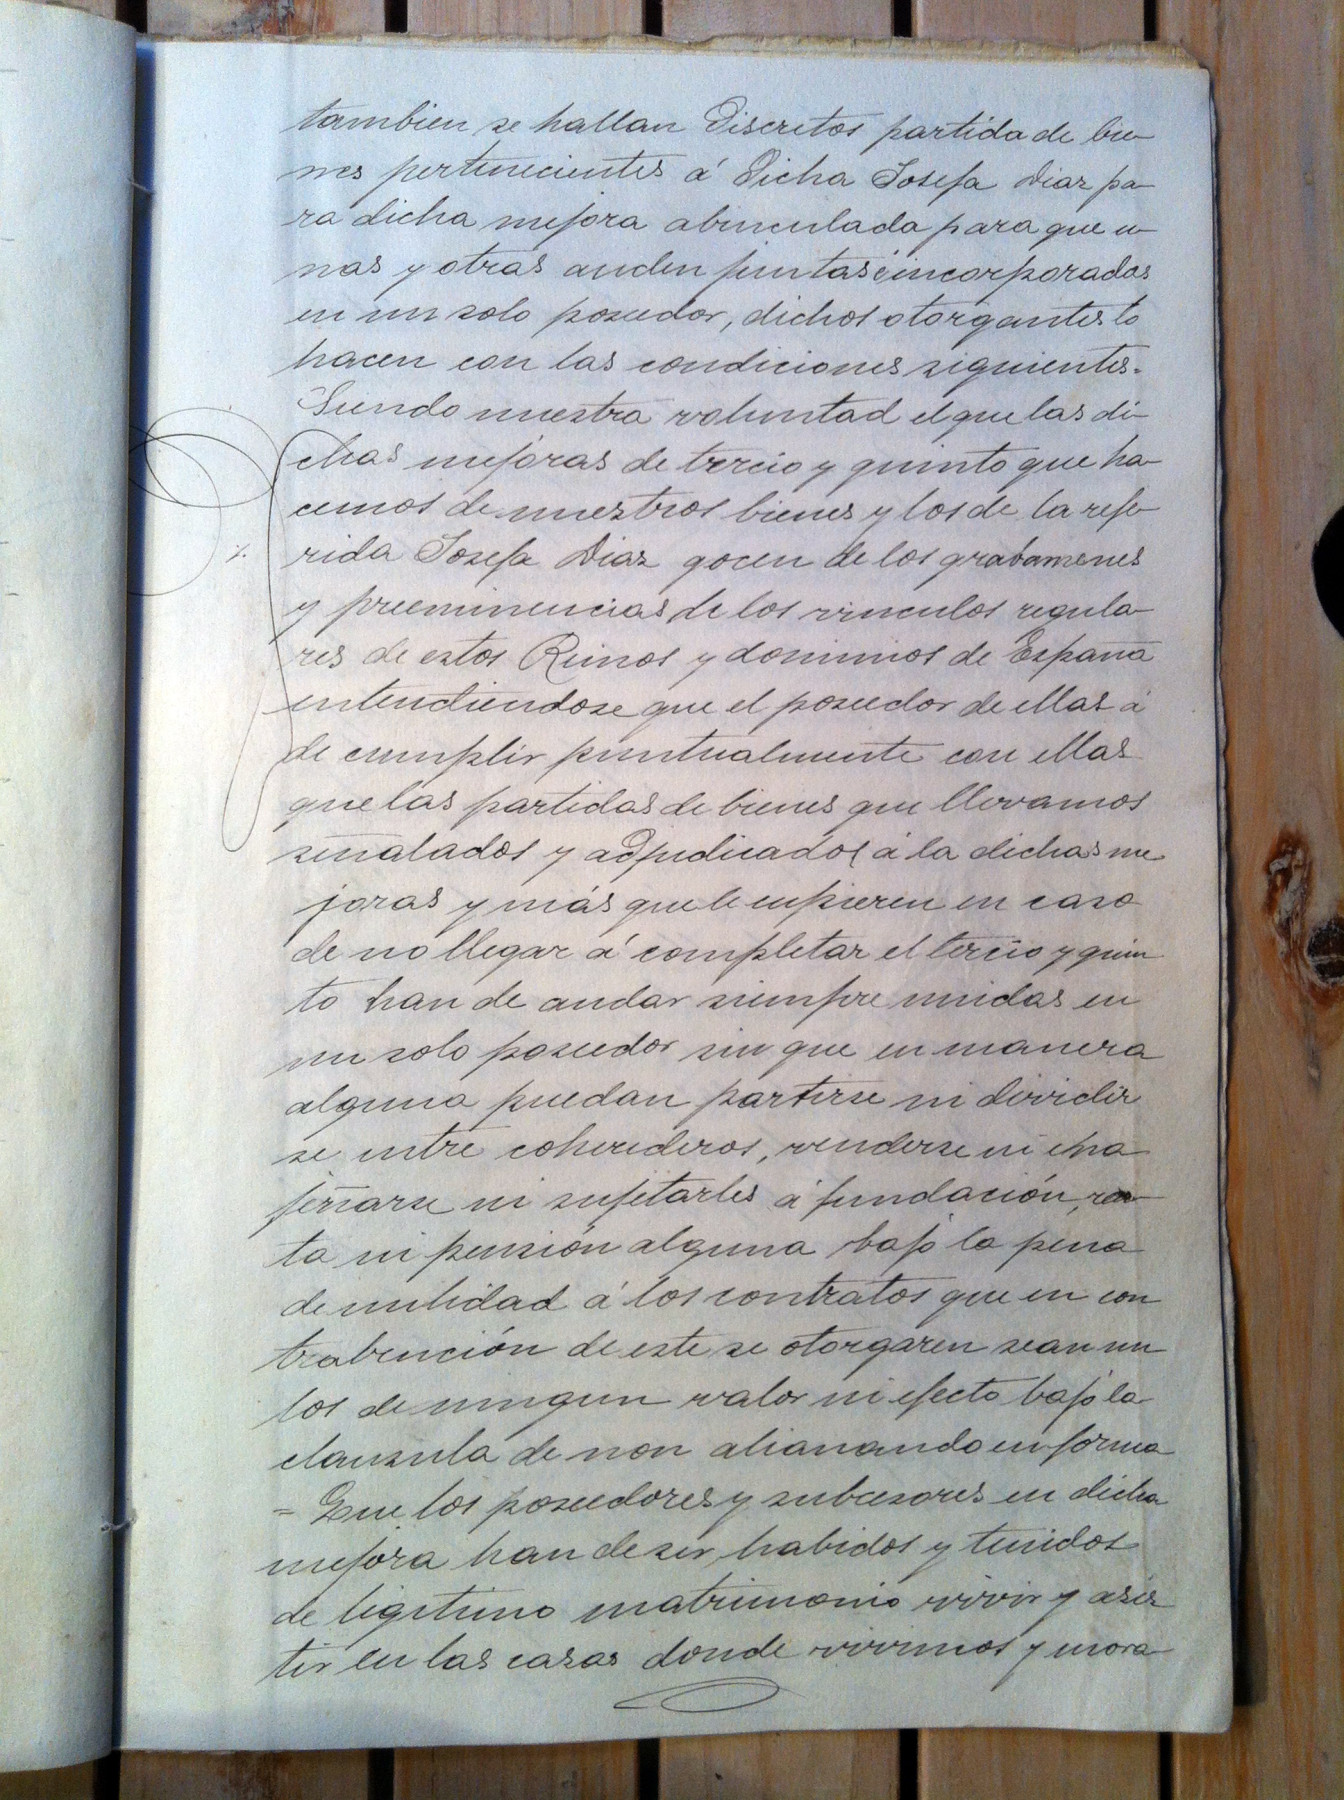 tambien se hallan Discretos partida de bie-
nes pertenecientes á Dicha Josefa Diaz pa-
ra dicha mejora abinculada para que u-
nas y otras anden juntas é incorporadas
en un solo poseedor, dichos otorgantes lo
hacen con las condiciones siguientes.
Siendo nuestra voluntad el que las di-
chas mejoras de tercio y quinto que ha-
cemos de nuestros bienes y los de la refe-
rida Josefa Diaz gocen de los grabamenes
y preeminencias de los vinculos regula-
res de estos Reinos y dominios de España
entendiendose que el poseedor de ellas á
de cumplir puntualmente con ellas
que las partidas de bienes que llevamos
señalados y adjudicados á la dichas me-
joras y más que le cupieren en caso
de no llegar á completar el tercio y quin
to han de andar siempre unidas en
un solo poseedor sin que en manera
alguna puedan partirse ni dividir
se entre coherederos, venderse ni ena
jenarse ni sujetarles á fundación, ren-
ta ni pensión alguna bajo la pena
de nulidad á los contratos que en con
trabención de este se otorgaren sean nu
los de ningun valor ni efecto bajo la
clausula de non alianando en forma
= Que los poseedores y subcesores en dicha
mejora han de ser habidos y tenidos
de legitimo matrimonio vivir y asis
tir en las casas donde vivimos y mora